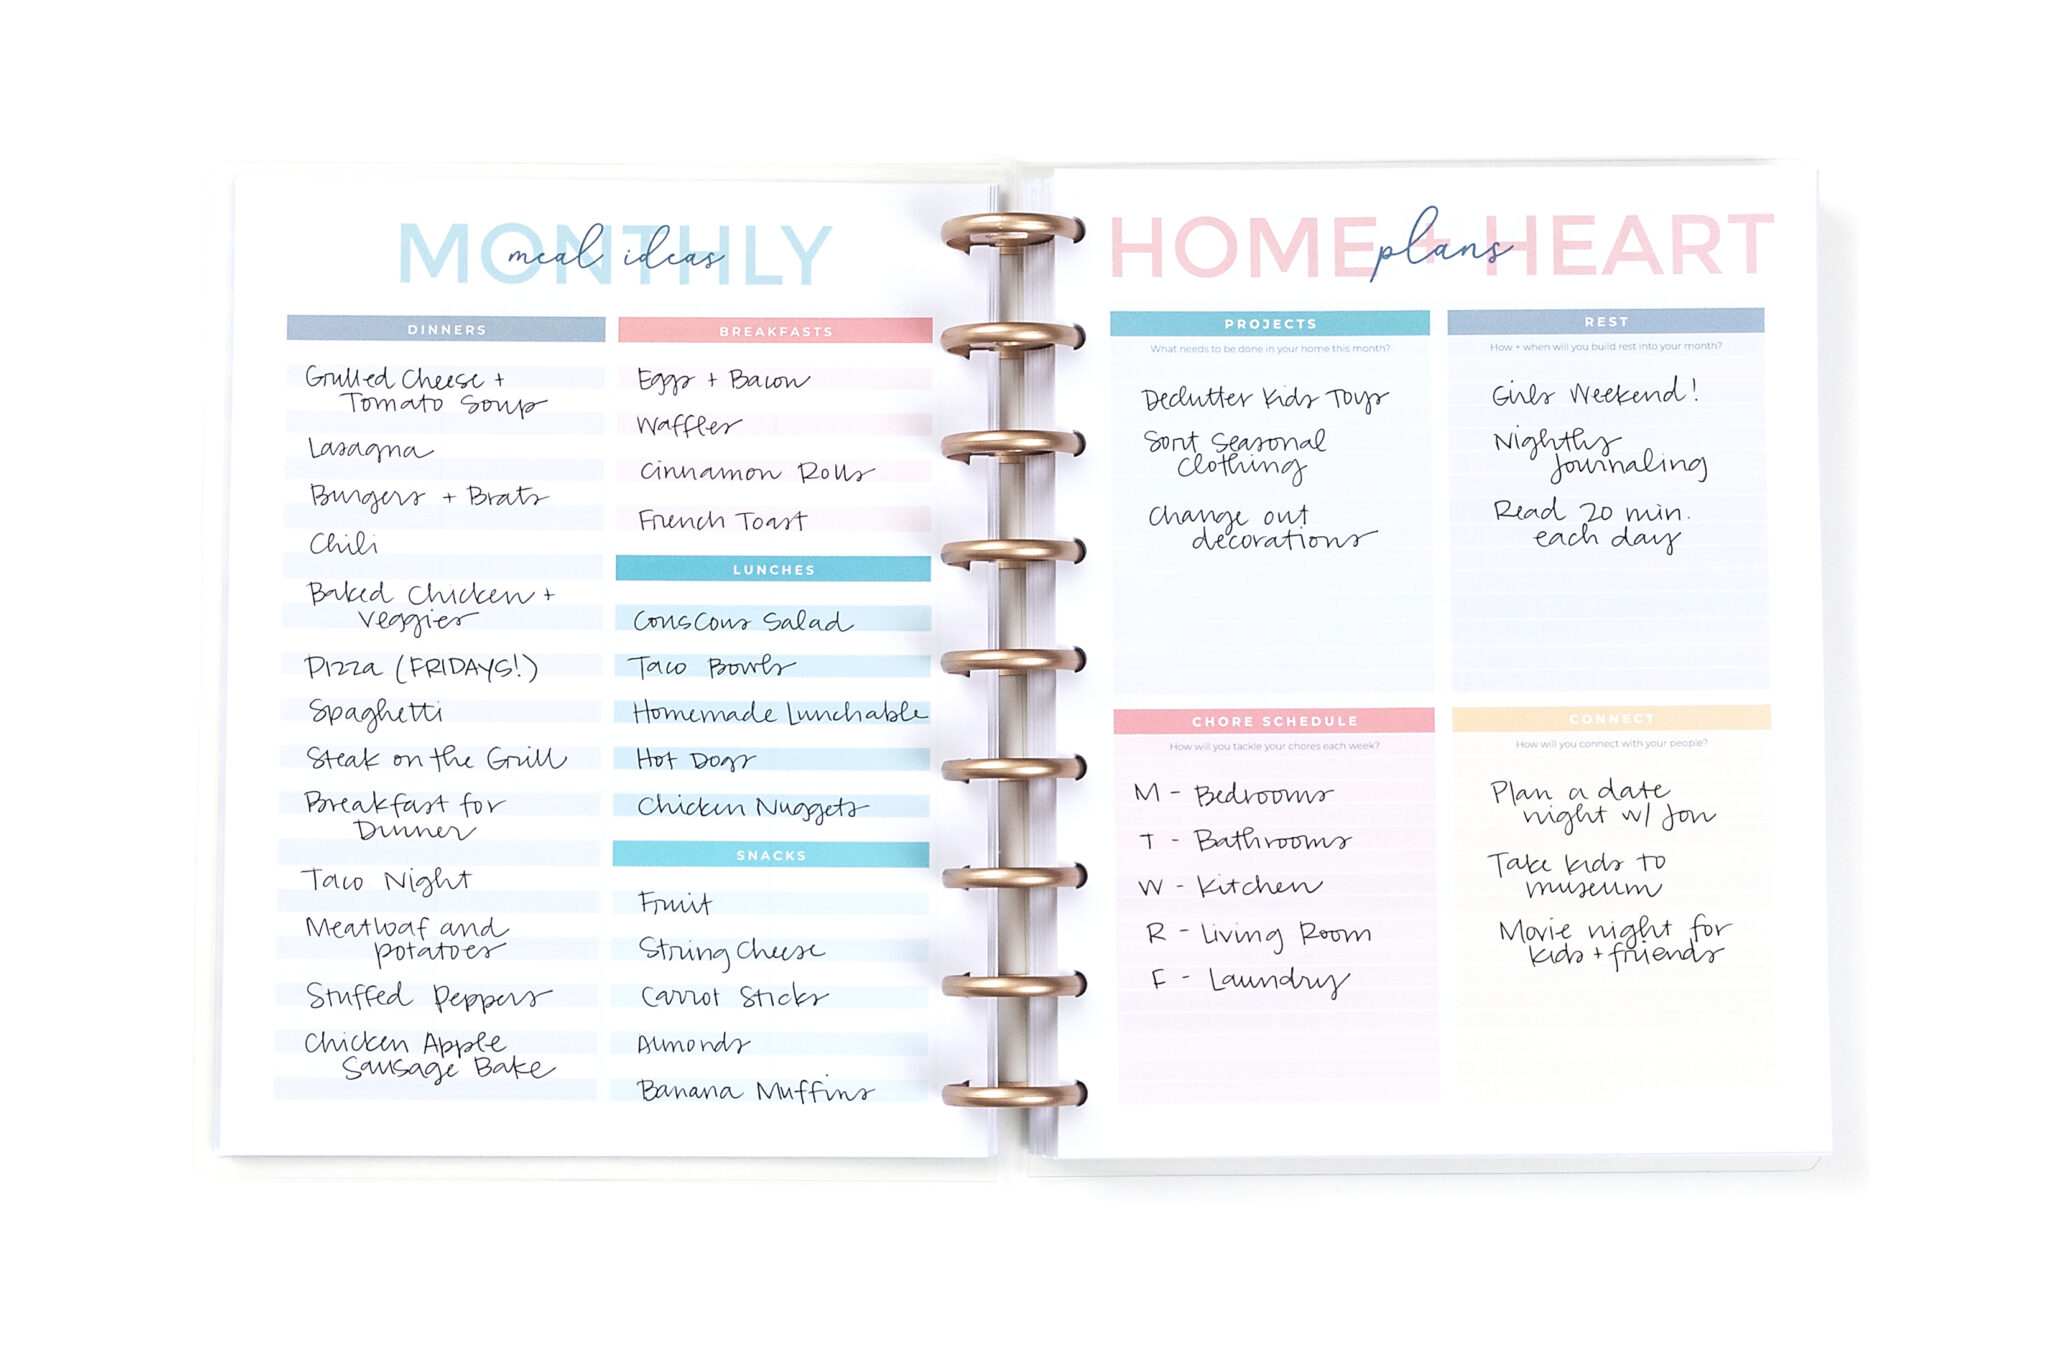 MONTHLY
meal ideas
DINNERS
Grilled Cheese +
Tomato Soup
Lasagna
Burgers + Brats
Chili
Baked Chicken +
veggies
Pizza (FRIDAYS!)
Spaghetti
Steak on the Grill
Breakfast for
Dinner
Taco Night
Meatloaf and
potatoes
Stuffed Peppers
Chicken Apple
Sausage Bake
BREAKFASTS
Eggs + Bacon
Waffles
Cinnamon Rolls
French Toast
LUNCHES
CousCous Salad
Taco Bowls
Homemade Lunchable
Hot Dogs
Chicken Nuggets
SNACKS
Fruit
String Cheese
Carrot Sticks
Almonds
Banana Muffins
HOME + HEART
plans
PROJECTS
What needs to be done in your home this month?
Declutter Kids Toys
Sort Seasonal
clothing
Change out
decorations
REST
How + when will you build rest into your month?
Girls Weekend!
Nightly
Journaling
Read 20 min.
each day
CHORE SCHEDULE
How will you tackle your chores each week?
M - Bedrooms
T - Bathrooms
W - Kitchen
R - Living Room
F - Laundry
CONNECT
How will you connect with your people?
Plan a date
night w/ Jon
Take kids to
museum
Movie night for
kids + friends